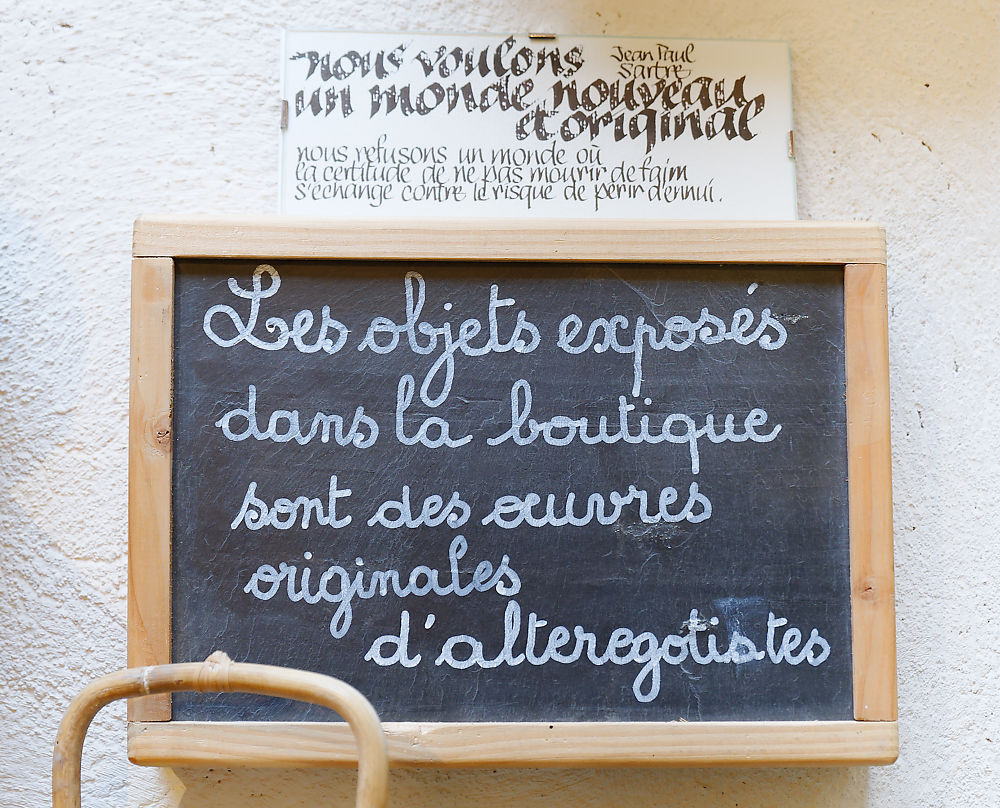 nous voulons
Jean Paul
Sartre
un monde nouveau
et original
nous refusons un monde où
la certitude de ne pas mourir de faim
s'échange contre le risque de périr d'ennui.
Les objets exposés
dans la boutique
sont des œuvres
originales
d'alteregotistes